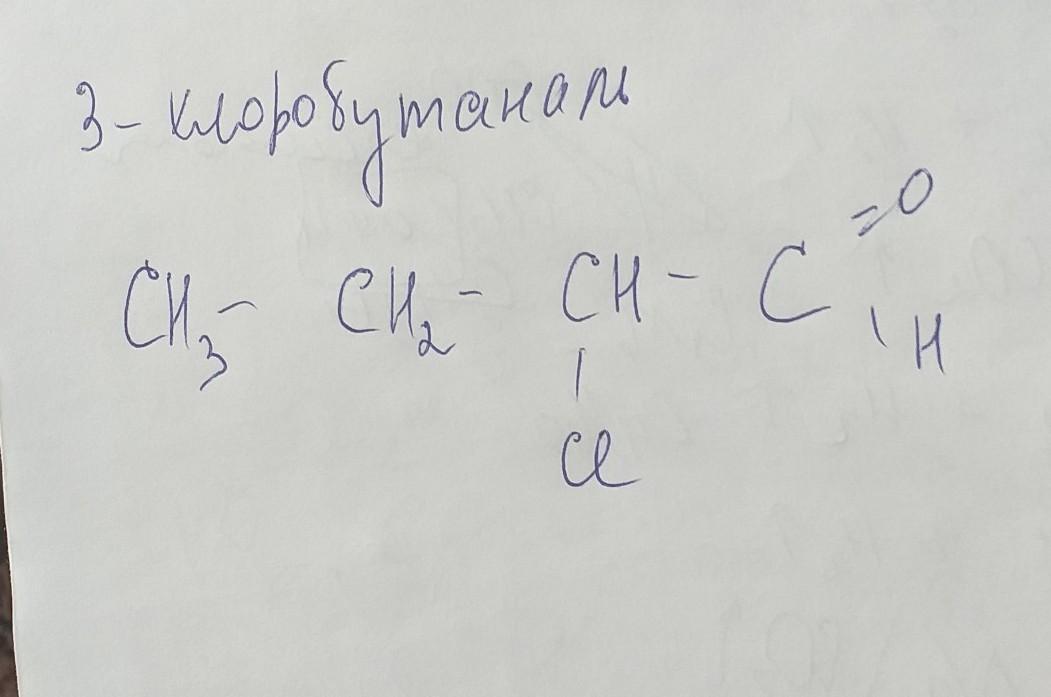 3-хлоробутаналь
=O
CH3- CH2- CH- C
\ H
|
Cl